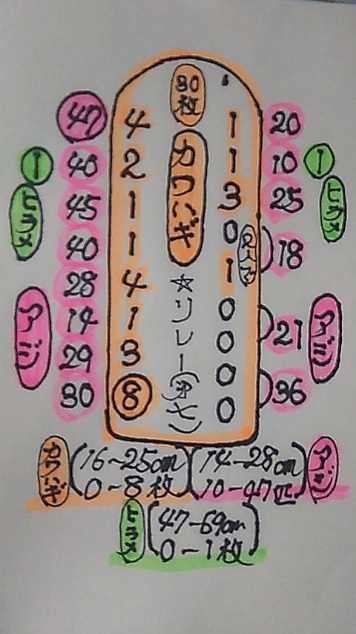 30枚
カワハギ
☆リレー(第七)
47 4 1 20
① 46 2 1 10 ①
ヒラメ 45 1 3 25 ヒラメ
40 1 0
1 18
28 4 0
アジ 14 1 0 21 アジ
29 3 0
30 ⑧ 0 36
カワハギ (16~25cm 0-8枚)
(14-28cm 10-47匹) アジ
ヒラメ (47-69cm 0-1枚)